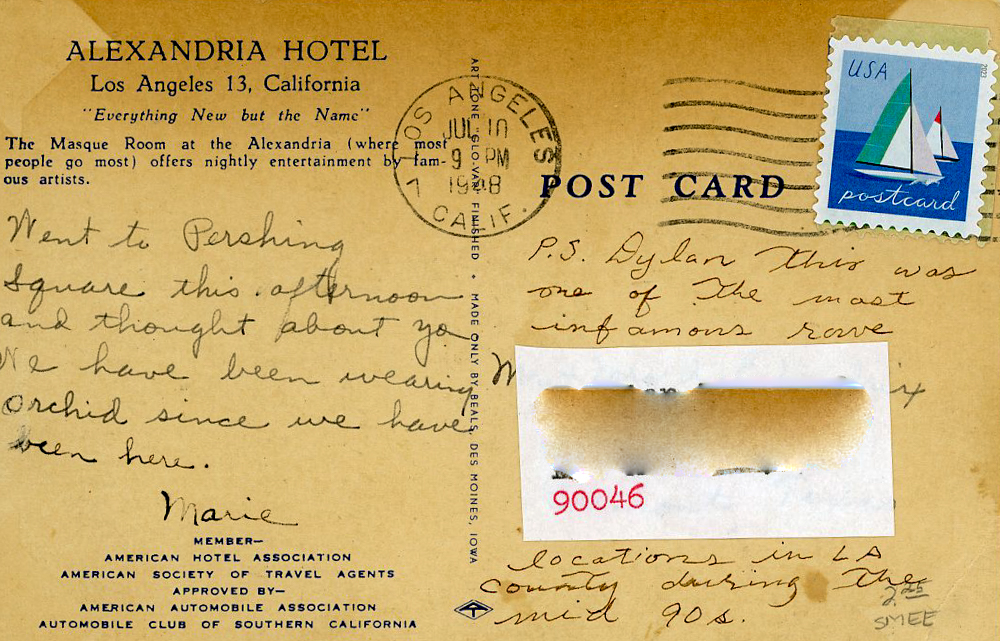 ALEXANDRIA HOTEL
Los Angeles 13, California
"Everything New but the Name"
The Masque Room at the Alexandria (where most
people go most) offers nightly entertainment by fam-
ous artists.
Went to Pershing
Square this afternoon
and thought about yo
We have been wearing
Orchid since we have
been here.
Marie
MEMBER—
AMERICAN HOTEL ASSOCIATION
AMERICAN SOCIETY OF TRAVEL AGENTS
APPROVED BY—
AMERICAN AUTOMOBILE ASSOCIATION
AUTOMOBILE CLUB OF SOUTHERN CALIFORNIA
ART TONE "GLO-VAR" FINISHED • MADE ONLY BY BEALS, DES MOINES, IOWA
LOS ANGELES
JUL 10
9 PM
CALIF.
POST CARD
USA
2023
postcard
P.S. Dylan this was
one of the most
infamous rave
90046
locations in LA
county during the
mid 90s.
2.25
SMEE